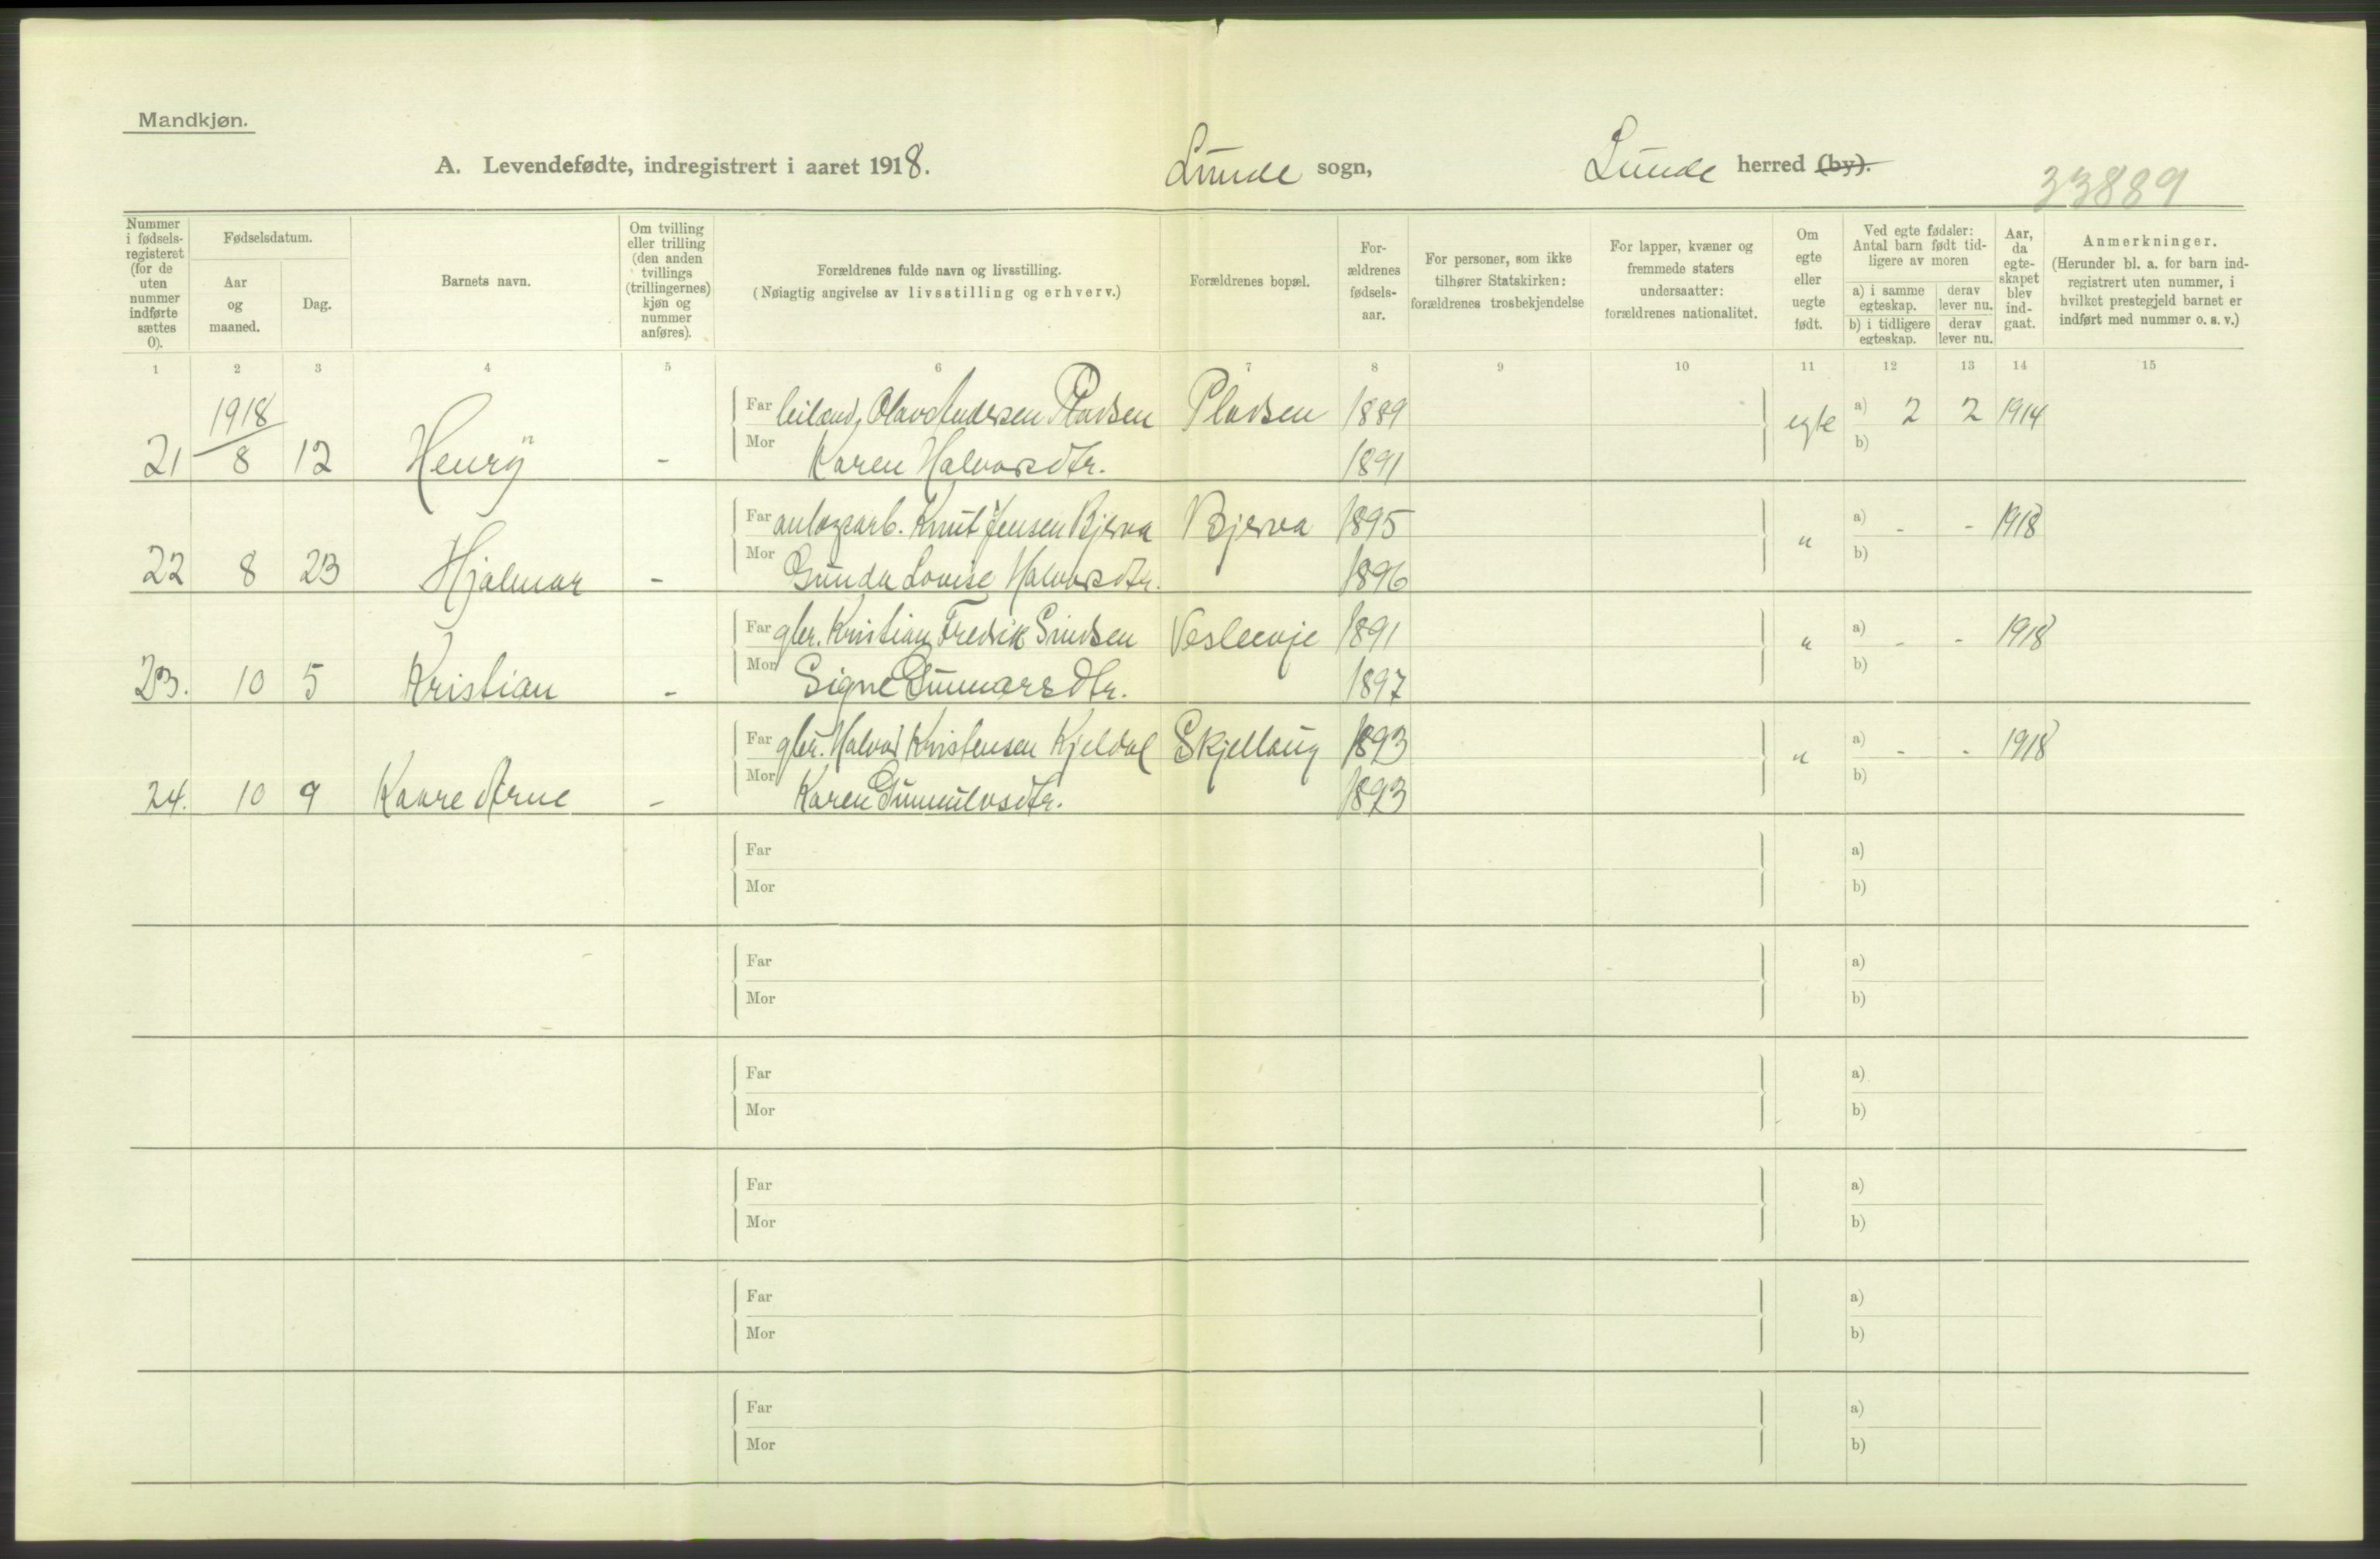 Mandkjøn.
A. Levendefødte, indregistrert i aaret 1918. Lunde sogn, Lunde herred (by).
33889
Nummer i fødsels-registeret (for de uten nummer indførte sættes 0).
Fødselsdatum.
Aar og maaned.
Dag.
Barnets navn.
Om tvilling eller trilling (den anden tvillings (trillingernes) kjøn og nummer anføres).
Forældrenes fulde navn og livsstilling.
(Nøiagtig angivelse av livsstilling og erhverv.)
Forældrenes bopæl.
For-ældrenes fødsels-aar.
For personer, som ikke tilhører Statskirken: forældrenes trosbekjendelse
For lapper, kvæner og fremmede staters undersaatter: forældrenes nationalitet.
Om egte eller uegte født.
Ved egte fødsler: Antal barn født tid-ligere av moren
a) i samme egteskap.
derav lever nu.
b) i tidligere egteskap.
derav lever nu.
Aar, da egte-skapet blev ind-gaat.
Anmerkninger.
(Herunder bl. a. for barn ind-registrert uten nummer, i hvilket prestegjeld barnet er indført med nummer o. s. v.)
1 2 3 4 5 6 7 8 9 10 11 12 13 14 15
1918
Far leilænd, Olav Andersen Pladsen Pladsen 1889 egte a) 2 2 1914
21 8 12 Henry - Mor Karen Halvorsdtr. 1891 b)
Far anlægsarb. Knut Jensen Bjerva Bjerva 1895 " a) - - 1918
22 8 23 Hjalmar - Mor Gunda Lovise Halvorsdtr. 1896 b)
Far gbr. Kristian Fredrik Sindsen 1891 " a) - - 1918
23. 10 5 Kristian - Mor Signe Gunnarsdtr. 1897 b)
Far gbr. Halvor Kristensen Kjeldal Skjellaug 1893 " a) - - 1918
24. 10 9 Kaare Arne - Mor Karen Gunnulvsdtr. 1893 b)
Far a)
Mor b)
Far a)
Mor b)
Far a)
Mor b)
Far a)
Mor b)
Far a)
Mor b)
Far a)
Mor b)